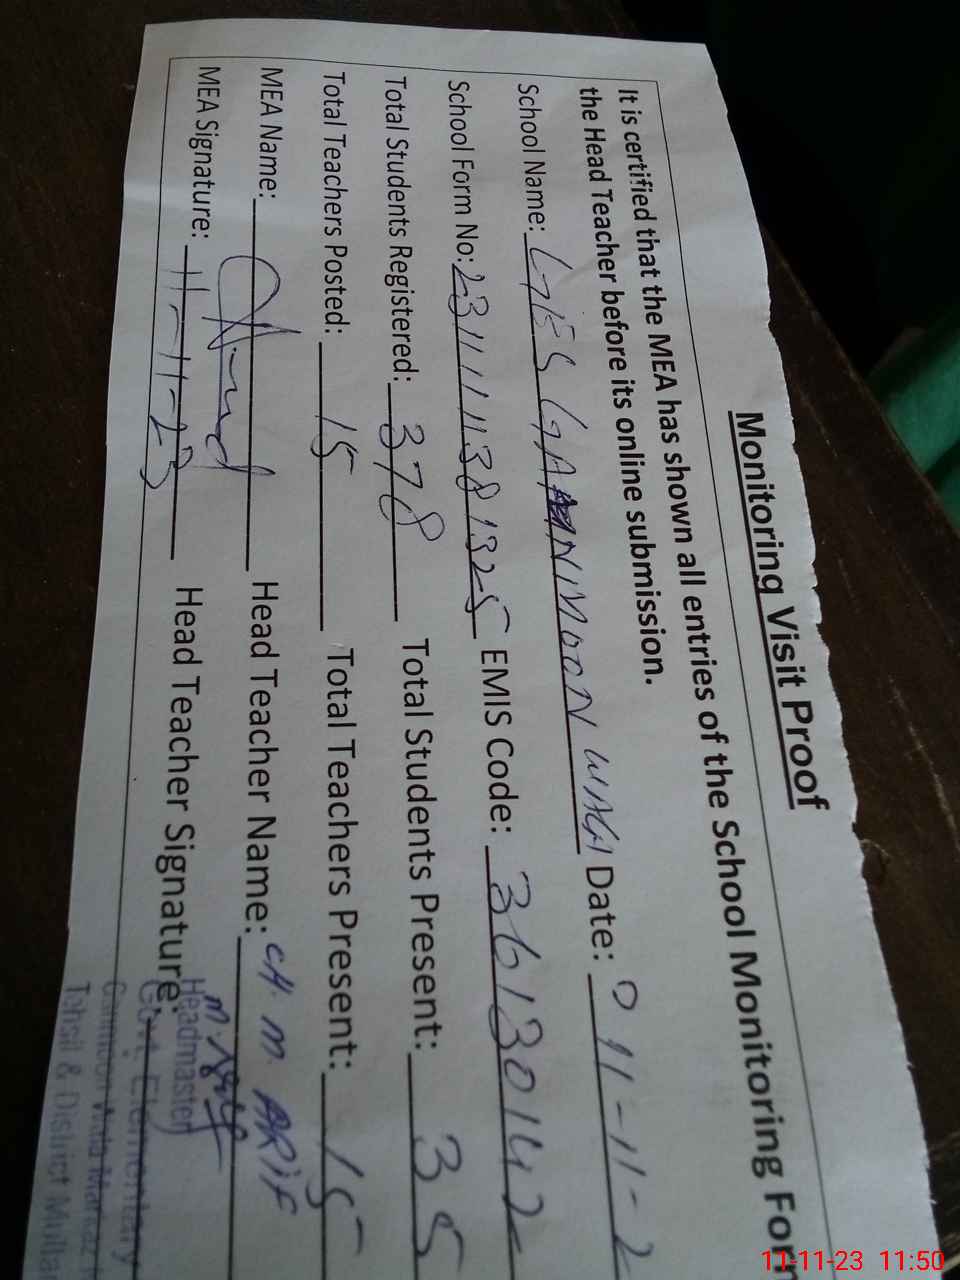 Monitoring Visit Proof
It is certified that the MEA has shown all entries of the School Monitoring Form
the Head Teacher before its online submission.
School Name: GES GANNMOON WALA Date: 11-11-2
School Form No: 23111111381325 EMIS Code: 36130142
Total Students Registered: 378 Total Students Present: 35
Total Teachers Posted: 15 Total Teachers Present: 15
MEA Name: Head Teacher Name: CH. M ARIF
MEA Signature: 11-11-23 Head Teacher Signature:
Headmaster
Govt. Elementary
Tehsil & District Multan
11-11-23 11:50